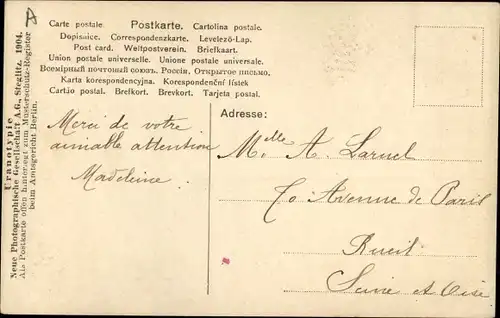 A
Uranotypie
Neue Photographische Gesellschaft A.G., Steglitz. 1904.
Als Postkarte offen hinterlegt zum Musterschutz-Register
beim Amtsgericht Berlin.
Carte postale Postkarte. Cartolina postale.
Dopisnice. Correspondenzkarte. Levelező-Lap.
Post card. Weltpostverein. Briefkaart.
Union postale universelle. Unione postale universale.
Всемірный почтовый союзъ. Россія. Открытое письмо.
Karta korespondencyjna. Korespondenční lístek
Cartão postal. Brefkort. Brevkort. Tarjeta postal.
Merci de votre
aimable attention
Madeleine.
Adresse:
Melle A.
70 Avenue de Paris
Rueil
Seine et Oise